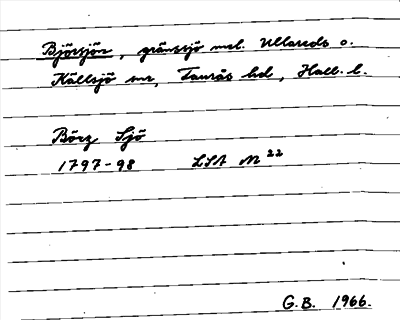 Björsjön, gränssjö mel. Ullareds o.
Källsjö snr, Faurås hd, Hall. l.
Börz Sjö
1797-98 LSA N 22
G.B. 1966.